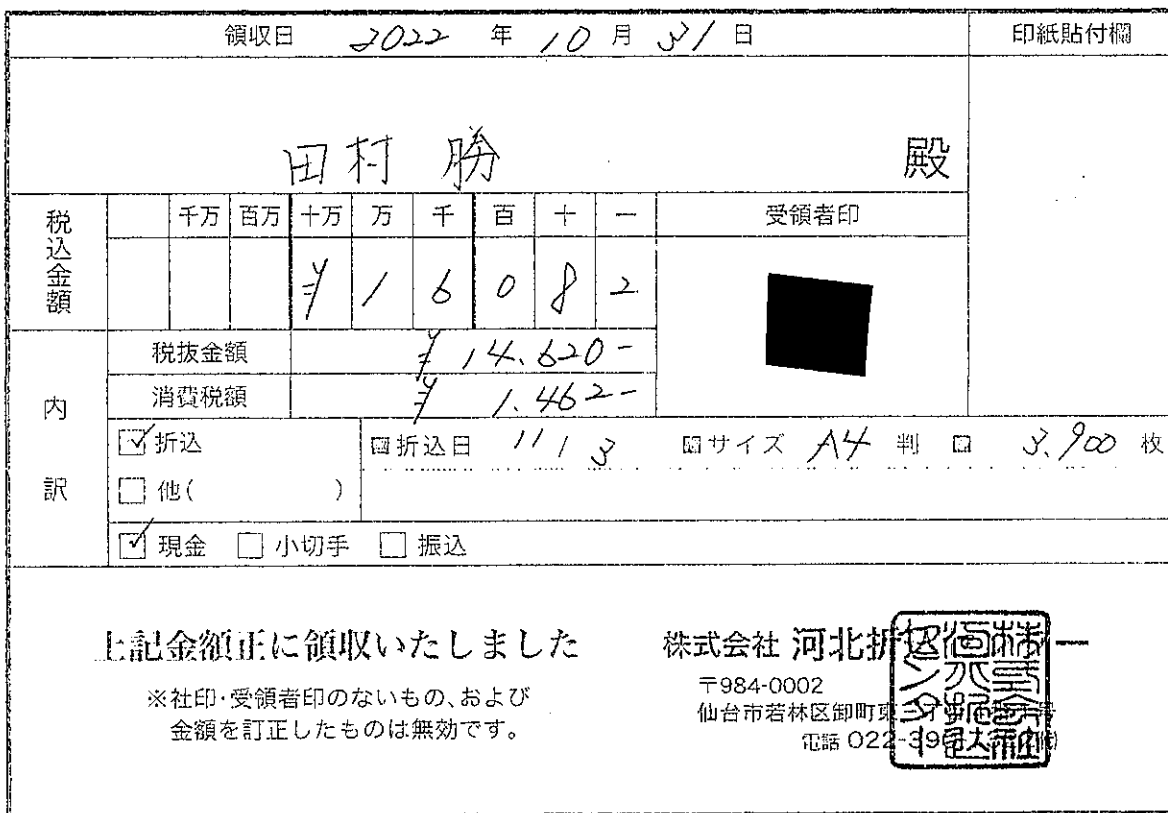 領収日 2022 年 10 月 31 日
印紙貼付欄
田村 勝 殿
税込金額
千万 百万 十万 万 千 百 十 一
受領者印
¥ 1 6 0 8 2
内訳
税抜金額 ¥ 14.620-
消費税額 ¥ 1.462-
☑ 折込 折込日 11 / 3 サイズ A4 判 3.900 枚
☐ 他( )
☑ 現金 ☐ 小切手 ☐ 振込
上記金額正に領収いたしました
※社印・受領者印のないもの、および
金額を訂正したものは無効です。
株式会社 河北折込センター
〒984-0002
仙台市若林区卸町東
電話 022-39
株式会社河北折込センター